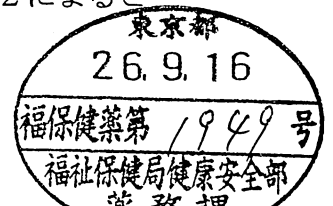 によると
東京都
26.9.16
福保健薬第1949号
福祉保健局健康安全部
薬務課